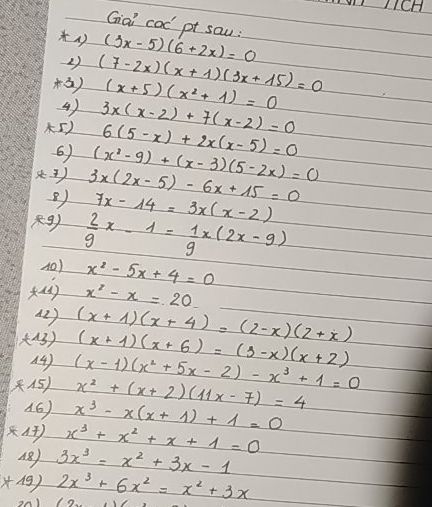 TICH
Giải các pt sau:
* 1) (3x - 5)(6 + 2x) = 0
2) (7 - 2x)(x + 1)(3x + 15) = 0
* 3) (x + 5)(x² + 1) = 0
4) 3x(x - 2) + 7(x - 2) = 0
* 5) 6(5 - x) + 2x(x - 5) = 0
6) (x² - 9) + (x - 3)(5 - 2x) = 0
* 7) 3x(2x - 5) - 6x + 15 = 0
8) 7x - 14 = 3x(x - 2)
* 9) 2/9 x - 1 = 1/9 x(2x - 9)
10) x² - 5x + 4 = 0
* 11) x² - x = 20
12) (x + 1)(x + 4) = (2 - x)(2 + x)
* 13) (x + 1)(x + 6) = (3 - x)(x + 2)
14) (x - 1)(x² + 5x - 2) - x³ + 1 = 0
* 15) x² + (x + 2)(11x - 7) = 4
16) x³ - x(x + 1) + 1 = 0
* 17) x³ + x² + x + 1 = 0
18) 3x³ = x² + 3x - 1
* 19) 2x³ + 6x² = x² + 3x